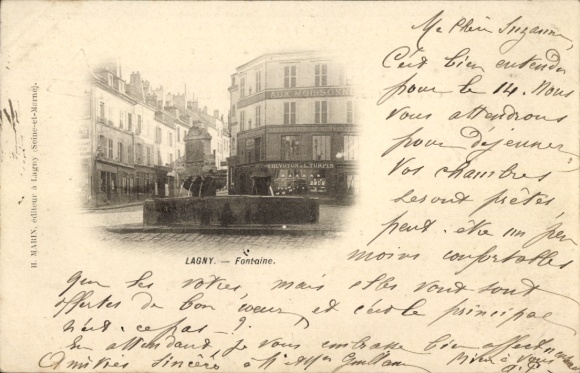 Ma chère Suzanne,
C'est bien entendu
pour le 14. Nous
vous attendrons
pour déjeuner
Vos chambres
seront prêtes
peut-être un peu
moins confortables
que les vôtres, mais elles vous sont
offertes de bon cœur, et c'est le principal
n'est-ce pas - ?
En attendant je vous embrasse bien
Amitiés sincères à
AUX MOISSONS
CHEVOYON & L. TURPIN
LAGNY. — Fontaine.
H. MARIN, éditeur à Lagny (Seine-et-Marne).